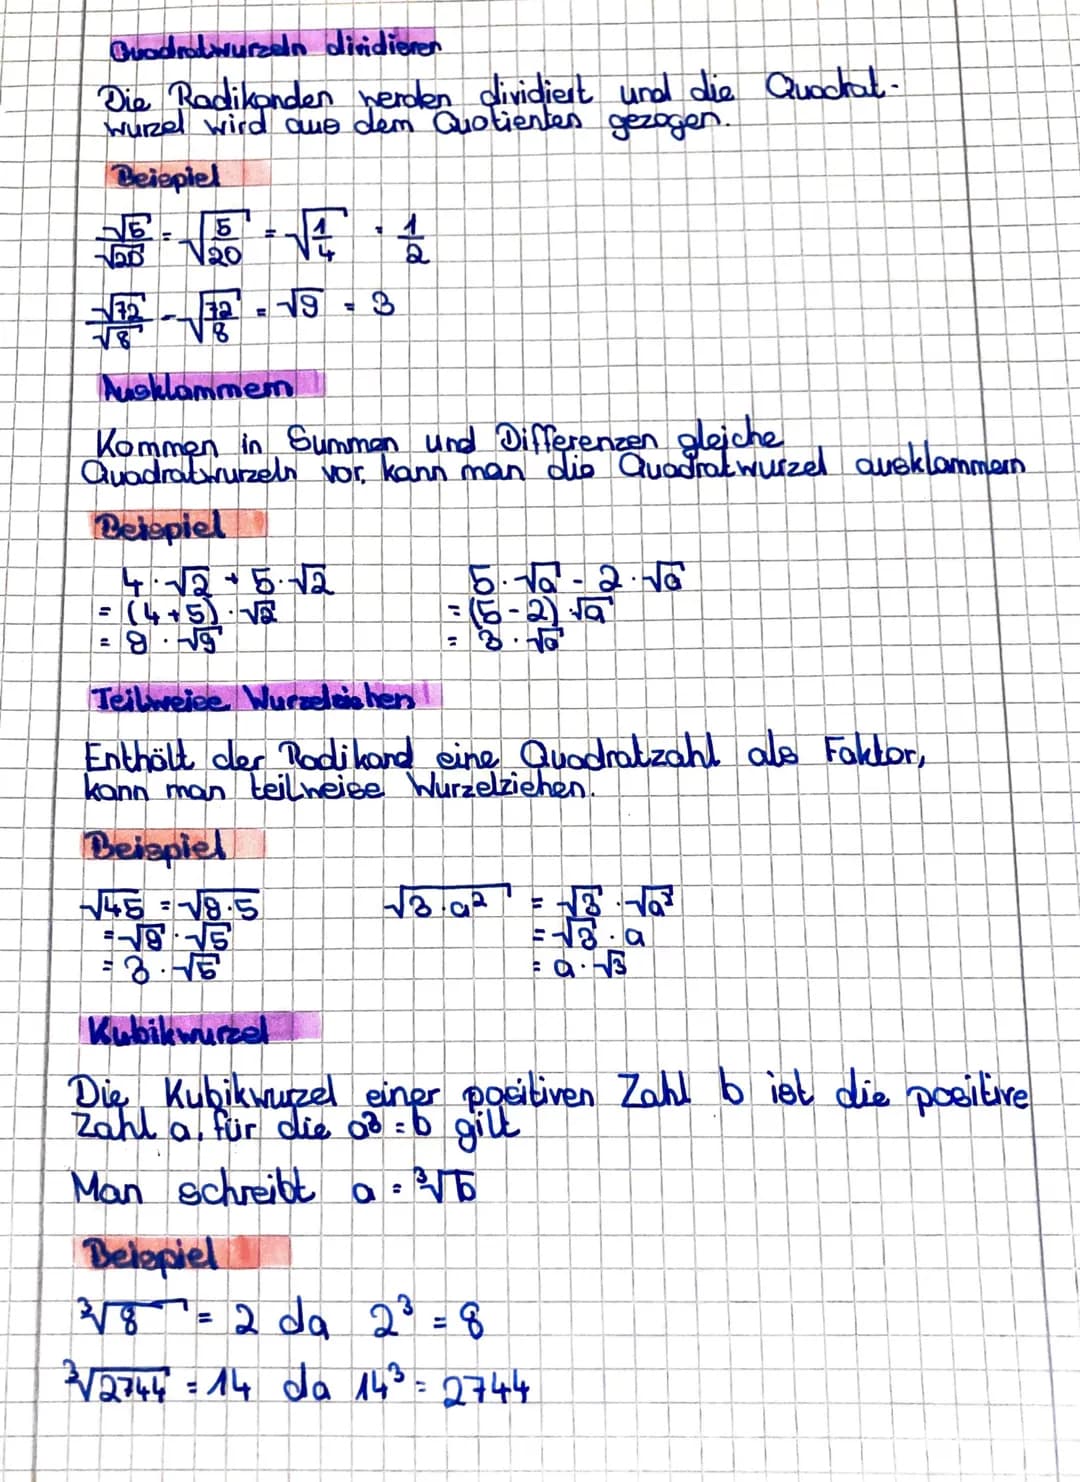 Quadratwurzeln dividieren
Die Radikanden werden dividiert und die Quadrat-
wurzel wird aus dem Quotienten gezogen.
Beispiel
√5/√20 = √(5/20) = √(1/4) = 1/2
√72/√8 = √(72/8) = √9 = 3
Ausklammern
Kommen in Summen und Differenzen gleiche
Quadratwurzeln vor, kann man die Quadratwurzel ausklammern
Beispiel
4·√2 + 5·√2
= (4+5)·√2
= 9·√9
5·√a - 2·√a
= (5-2)·√a
= 3·√a
Teilweise Wurzelziehen
Enthält der Radikand eine Quadratzahl als Faktor,
kann man teilweise Wurzelziehen.
Beispiel
√45 = √9·5
= √9·√5
= 3·√5
√3·a² = √3·√a²
= √3·a
= a·√3
Kubikwurzel
Die Kubikwurzel einer positiven Zahl b ist die positive
Zahl a, für die a³=b gilt
Man schreibt a = ³√b
Beispiel
³√8 = 2 da 2³ = 8
³√2744 = 14 da 14³ = 2744